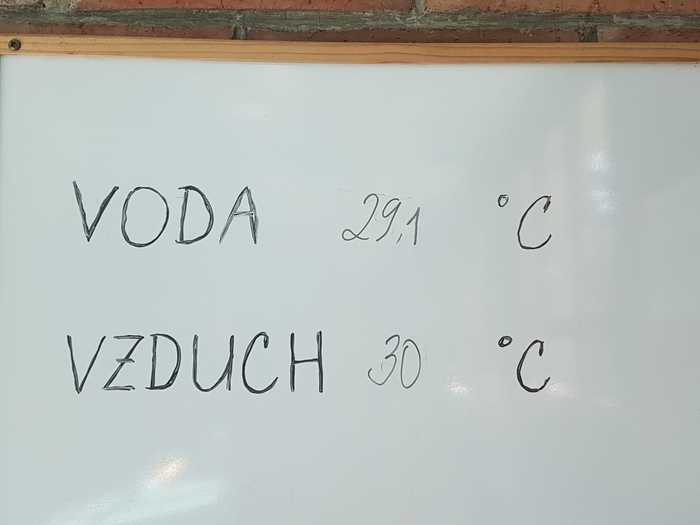 VODA 29,1 °C
VZDUCH 30 °C